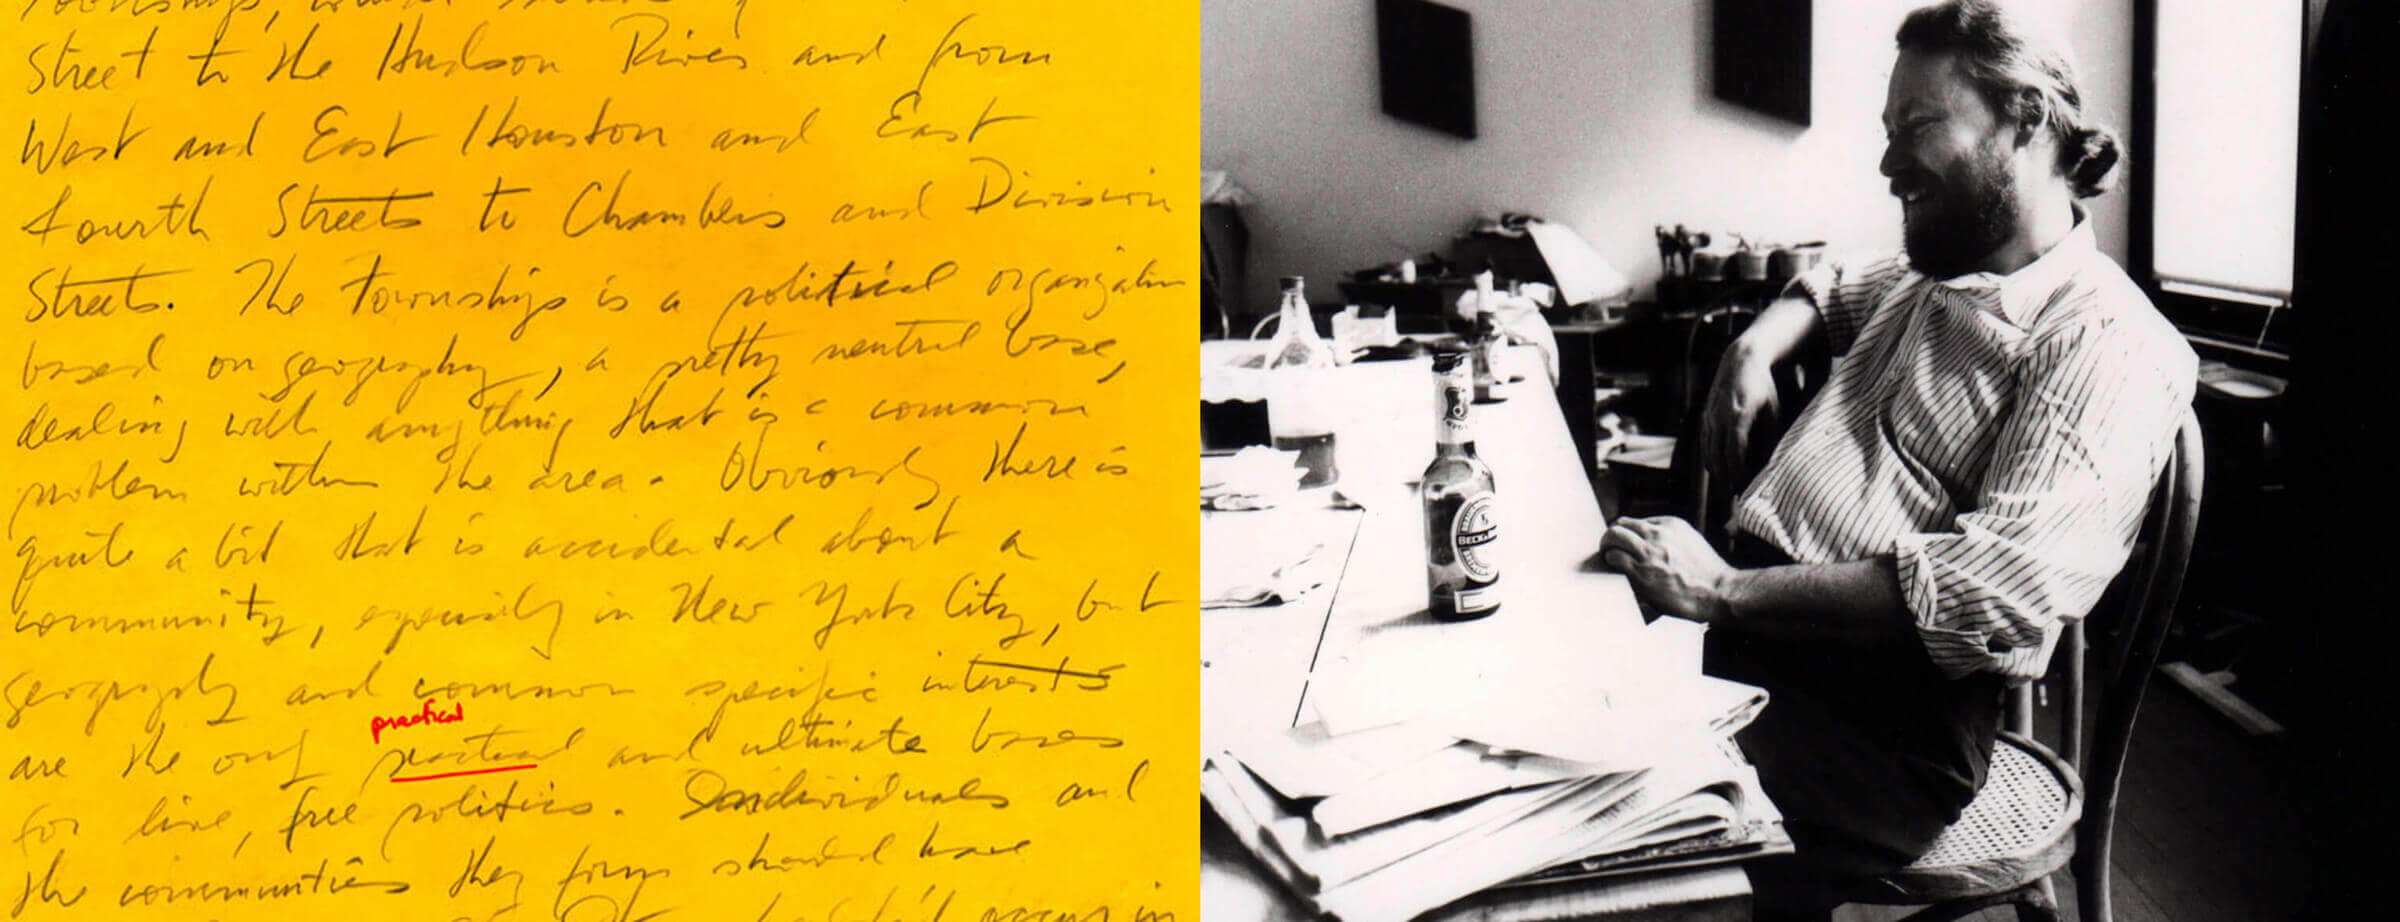 Street to the Hudson River and from
West and East Houston and East
Fourth Streets to Chambers and Division
Streets. The Townships is a political organization
based on geography, a pretty neutral base,
dealing with anything that is a common
problem within the area. Obviously there is
quite a bit that is accidental about a
community, especially in New York City, but
geography and common specific interests
practical
are the only practical and ultimate bases
for live, free politics. Individuals and
the communities they form should have
occur in
BECK'S